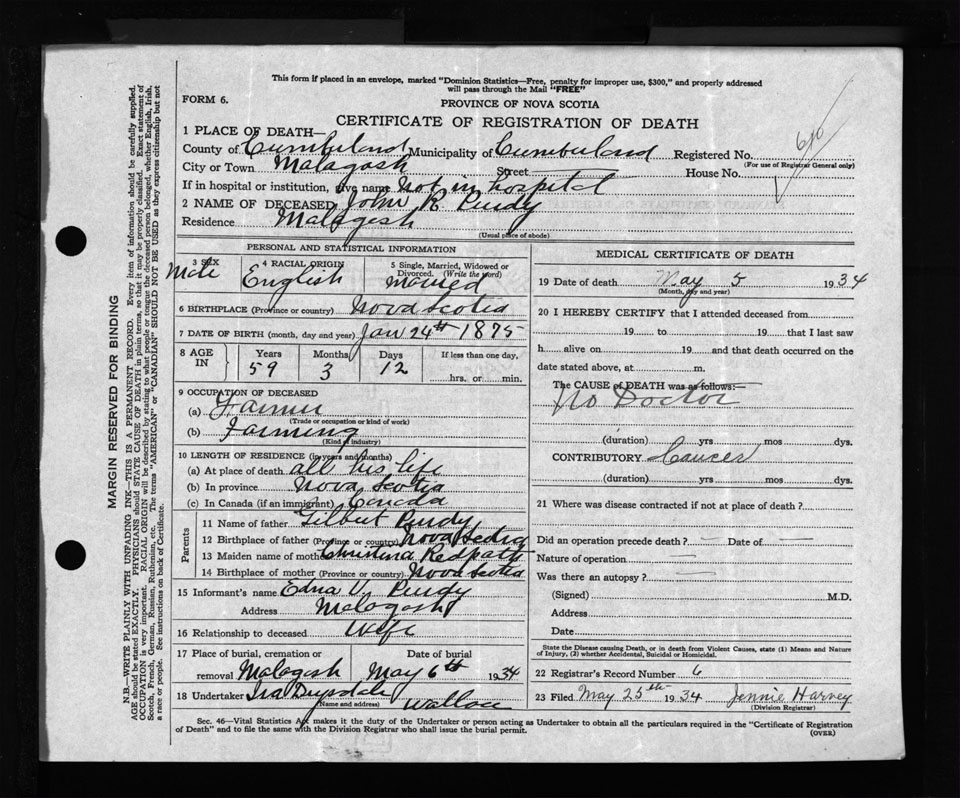 This form if placed in an envelope, marked "Dominion Statistics—Free, penalty for improper use, $300," and properly addressed
will pass through the Mail "FREE"
FORM 6.
PROVINCE OF NOVA SCOTIA
CERTIFICATE OF REGISTRATION OF DEATH
1 PLACE OF DEATH—
County of Cumberland Municipality of Cumberland Registered No. 610
(For use of Registrar General only)
City or Town Malagash Street House No.
If in hospital or institution, give name not in hospital
2 NAME OF DECEASED John R Purdy
Residence Malagash
(Usual place of abode)
PERSONAL AND STATISTICAL INFORMATION
3 SEX Male
4 RACIAL ORIGIN English
5 Single, Married, Widowed or Divorced. (Write the word) Married
6 BIRTHPLACE (Province or country) Nova Scotia
7 DATE OF BIRTH (month, day and year) Jan 24th 1875
8 AGE IN Years 59 Months 3 Days 12 If less than one day, hrs. or min.
9 OCCUPATION OF DECEASED
(a) Farmer
(Trade or occupation or kind of work)
(b) Farming
(Kind of industry)
10 LENGTH OF RESIDENCE (in years and months)
(a) At place of death all his life
(b) In province Nova Scotia
(c) In Canada (if an immigrant) Canada
Parents
11 Name of father Gilbert Purdy
12 Birthplace of father (Province or country) Nova Scotia
13 Maiden name of mother Christena Redpath
14 Birthplace of mother (Province or country) Nova Scotia
15 Informant's name Edna V. Purdy
Address Malagash
16 Relationship to deceased Wife
17 Place of burial, cremation or removal Malagash Date of burial May 6th 1934
18 Undertaker Ira Drysdale Wallace
(Name and address)
MEDICAL CERTIFICATE OF DEATH
19 Date of death May 5 1934
(Month, day and year)
20 I HEREBY CERTIFY that I attended deceased from
19 to 19 that I last saw
h alive on 19 and that death occurred on the
date stated above, at m.
The CAUSE of DEATH was as follows:—
No Doctor
(duration) yrs mos dys.
CONTRIBUTORY Cancer
(duration) yrs mos dys.
21 Where was disease contracted if not at place of death?
Did an operation precede death? — Date of —
Nature of operation —
Was there an autopsy? —
(Signed) M.D.
Address
Date
State the Disease causing Death, or in death from Violent Causes, state (1) Means and Nature
of Injury, (2) whether Accidental, Suicidal or Homicidal.
22 Registrar's Record Number 6
23 Filed May 25th 1934 Jennie Harvey
(Division Registrar)
Sec. 46—Vital Statistics Act makes it the duty of the Undertaker or person acting as Undertaker to obtain all the particulars required in the "Certificate of Registration
of Death" and to file the same with the Division Registrar who shall issue the burial permit.
(OVER)
MARGIN RESERVED FOR BINDING
N.B.—WRITE PLAINLY WITH UNFADING INK—THIS IS A PERMANENT RECORD. Every item of information should be carefully supplied.
AGE should be stated EXACTLY. PHYSICIANS should STATE CAUSE OF DEATH in plain terms, so that it may be properly classified. Exact statement of
OCCUPATION is very important. RACIAL ORIGIN will be described by stating to what people or tongue the deceased person belonged, whether English, Irish,
Scotch, French, German, Russian, Ruthenian, etc. The terms "AMERICAN" or "CANADIAN" SHOULD NOT BE USED as they express citizenship but not
a race or people. See instructions on back of Certificate.